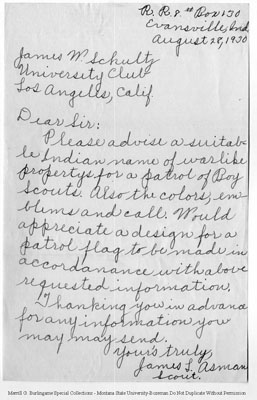 R. R. 8 Box 130
Evansville, Ind.
August 28, 1930
James W. Schultz
University Club
Los Angells, Calif
Dear Sir:
Please advise a suitab-
le Indian name of warlike
propertys for a patrol of Boy
Scouts. Also the colors, em-
blems and call. Would
appreciate a design for a
patrol flag to be made in
accordanance with above
requested information.
Thanking you in advance
for any information you
may may send.
Yours truly,
James L. Asman
Scout.
Merrill G. Burlingame Special Collections - Montana State University-Bozeman Do Not Duplicate Without Permission